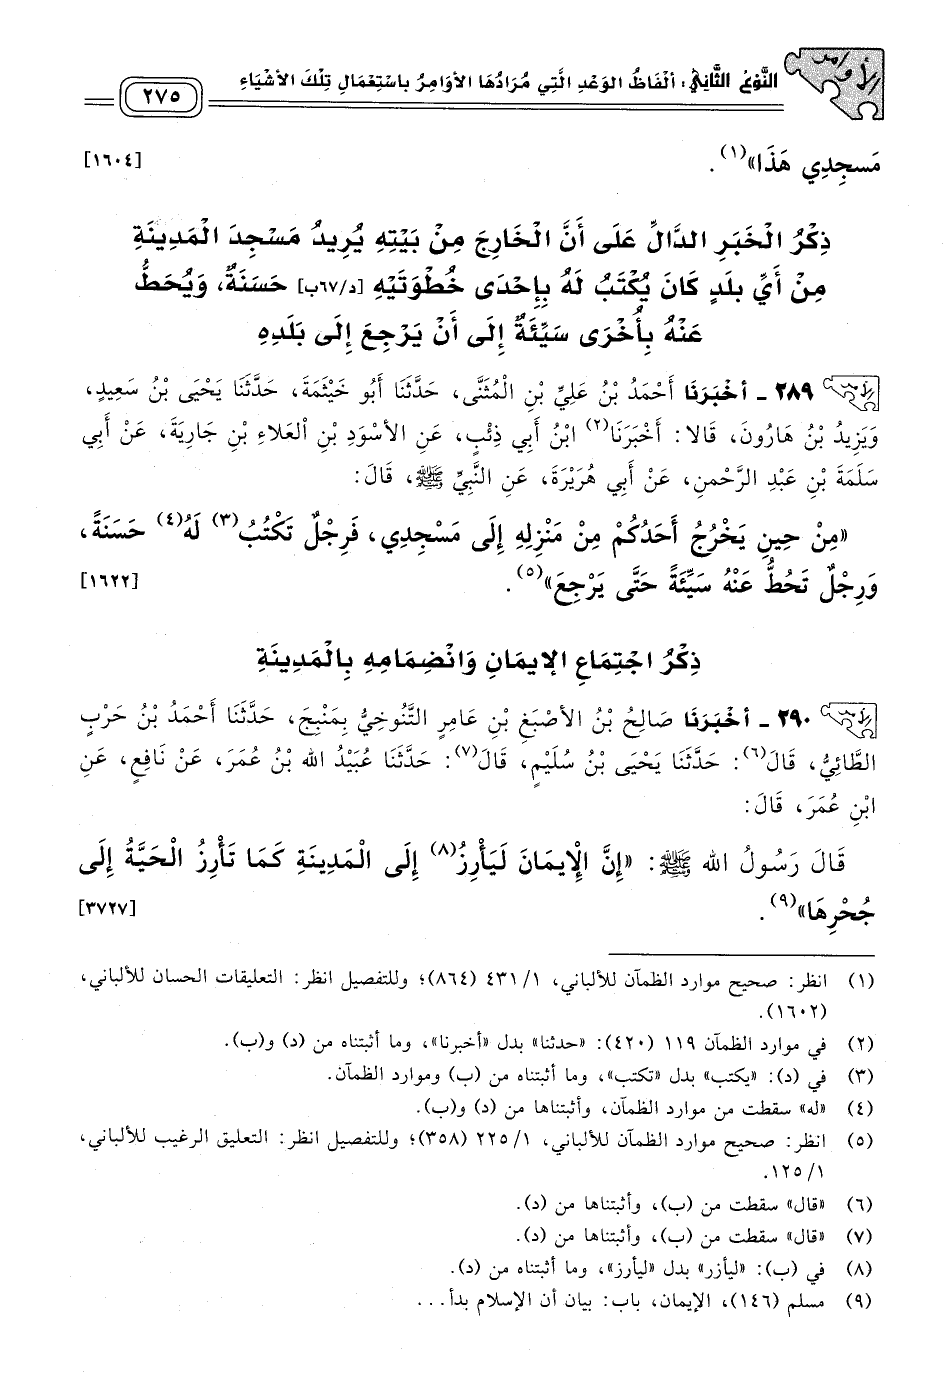 الأوامر
النَّوْعُ الثَّانِي: أَلْفَاظُ الوَعْدِ الَّتِي مُرَادُهَا الأوَامِرُ بِاسْتِعْمَالِ تِلْكَ الأشْيَاءِ
٢٧٥
مَسجِدِي هَذَا»(١). [١٦٠٤]
ذِكْرُ الْخَبَرِ الدَّالِّ عَلَى أَنَّ الْخَارِجَ مِنْ بَيْتِهِ يُرِيدُ مَسْجِدَ الْمَدِينَةِ
مِنْ أَيِّ بلَدٍ كَانَ يُكْتَبُ لَهُ بِإِحْدَى خُطْوَتَيْهِ [د/٦٧ب] حَسَنَةٌ، وَيُحَطُّ
عَنْهُ بِأُخْرَى سَيِّئَةٌ إِلَى أَنْ يَرْجِعَ إِلَى بَلَدِهِ
٢٨٩ ـ أخْبَرَنَا أَحْمَدُ بْنُ عَلِيِّ بْنِ الْمُثَنَّى، حَدَّثَنَا أَبُو خَيْثَمَةَ، حَدَّثَنَا يَحْيَى بْنُ سَعِيدٍ،
وَيَزِيدُ بْنُ هَارُونَ، قَالا: أَخْبَرَنَا(٢) ابْنُ أَبِي ذِئْبٍ، عَنِ الأسْوَدِ بْنِ الْعَلاءِ بْنِ جَارِيَةَ، عَنْ أَبِي
سَلَمَةَ بْنِ عَبْدِ الرَّحْمنِ، عَنْ أَبِي هُرَيْرَةَ، عَنِ النَّبِيِّ ﷺ، قَالَ:
«مِنْ حِينِ يَخْرُجُ أَحَدُكُمْ مِنْ مَنْزِلِهِ إِلَى مَسْجِدِي، فَرِجْلٌ تَكْتُبُ(٣) لَهُ(٤) حَسَنَةً،
وَرِجْلٌ تَحُطُّ عَنْهُ سَيِّئَةً حَتَّى يَرْجِعَ»(٥). [١٦٢٢]
ذِكْرُ اجْتِمَاعِ الإيمَانِ وَانْضِمَامِهِ بِالْمَدِينَةِ
٢٩٠ ـ أخْبَرَنَا صَالِحُ بْنُ الأصْبَغِ بْنِ عَامِرٍ التَّنُوخِيُّ بِمَنْبِجَ، حَدَّثَنَا أَحْمَدُ بْنُ حَرْبٍ
الطَّائِيُّ، قَالَ(٦): حَدَّثَنَا يَحْيَى بْنُ سُلَيْمٍ، قَالَ(٧): حَدَّثَنَا عُبَيْدُ الله بْنُ عُمَرَ، عَنْ نَافِعٍ، عَنِ
ابْنِ عُمَرَ، قَالَ:
قَالَ رَسُولُ الله ﷺ: «إِنَّ الْإِيمَانَ لَيَأْرِزُ(٨) إِلَى الْمَدِينَةِ كَمَا تَأْرِزُ الْحَيَّةُ إِلَى
جُحْرِهَا»(٩). [٣٧٢٧]
(١) انظر: صحيح موارد الظمآن للألباني، ١/ ٤٣١ (٨٦٤)؛ وللتفصيل انظر: التعليقات الحسان للألباني،
(١٦٠٢).
(٢) في موارد الظمآن ١١٩ (٤٢٠): «حدثنا» بدل «أخبرنا»، وما أثبتناه من (د) و(ب).
(٣) في (د): «يكتب» بدل «تكتب»، وما أثبتناه من (ب) وموارد الظمآن.
(٤) «له» سقطت من موارد الظمآن، وأثبتناها من (د) و(ب).
(٥) انظر: صحيح موارد الظمآن للألباني، ١/ ٢٢٥ (٣٥٨)؛ وللتفصيل انظر: التعليق الرغيب للألباني،
١/ ١٢٥.
(٦) «قال» سقطت من (ب)، وأثبتناها من (د).
(٧) «قال» سقطت من (ب)، وأثبتناها من (د).
(٨) في (ب): «ليأزر» بدل «ليأرز»، وما أثبتناه من (د).
(٩) مسلم (١٤٦)، الإيمان، باب: بيان أن الإسلام بدأ...